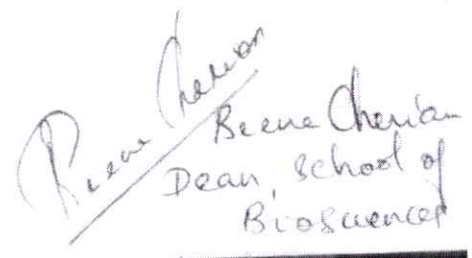 Beena Cherian
Beena Cherian
Dean, School of
Biosciences